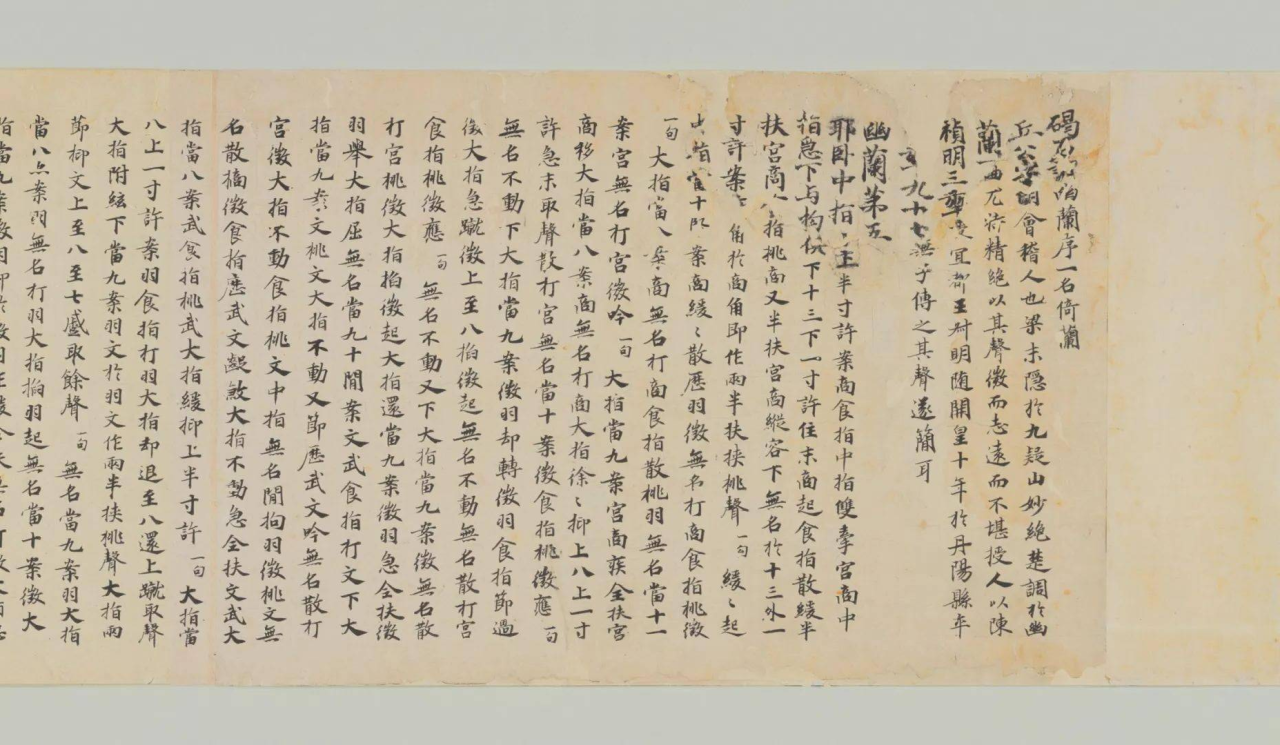 碣石調幽蘭序一名倚蘭
丘公字明會稽人也梁末隱於九疑山妙絕楚調於幽
蘭一曲尤特精絕以其聲微而志遠而不堪授人以陳
禎明三年授宜都王叔明随開皇十年於丹陽縣卒
年九十七無子傳之其聲遂簡耳
幽蘭第五
耶卧中指〻上半寸許案商食指中指雙牽宮商中
指急下与拘俱下十三下一寸許住末商起食指散緩半
扶宮商食指挑商又半扶宮商縱容下無名於十三外一
寸許案商角於商角即作兩半扶挟挑聲一句緩〻起
無名不動下 指當十 案商緩〻散歷羽徵無名打商食指挑徵
一句 大指當八案商無名打商食指散挑羽無名當十一
案宮無名打宮徵吟一句 大指當九案宮商疾全扶宮
商移大指當八案商無名打商大指徐〻抑上八上一寸
許急末取聲散打宮無名當十案徵食指挑徵應一句
無名不動下大指當九案徵羽却轉徵羽食指節過
徵大指急蹴徵上至八掐徵起無名不動無名散打宮
食指挑徵應一句 無名不動又下大指當九案徵無名散
打宮挑徵大指掐徵起大指還當九案徵羽急全扶徵
羽舉大指屈無名當九十間案文武食指打文下大
指當九案文挑文大指不動又節歷武文吟無名散打
宮徵大指不動食指挑文中指無名間拘羽徵挑文無
名散摘徵食指歷武文齪煞大指不動急全扶文武大
指當八案武食指挑武大指緩抑上半寸許一句 大指當
八上一寸許案羽食指打羽大指却退至八還上蹴取聲
大指附絃下當九案羽文於羽文作兩半挟挑聲大指兩
節抑文上至八至七盛取餘聲一句 無名當九案羽大指
當八点案羽無名打羽大指掐羽起無名當十案徵大